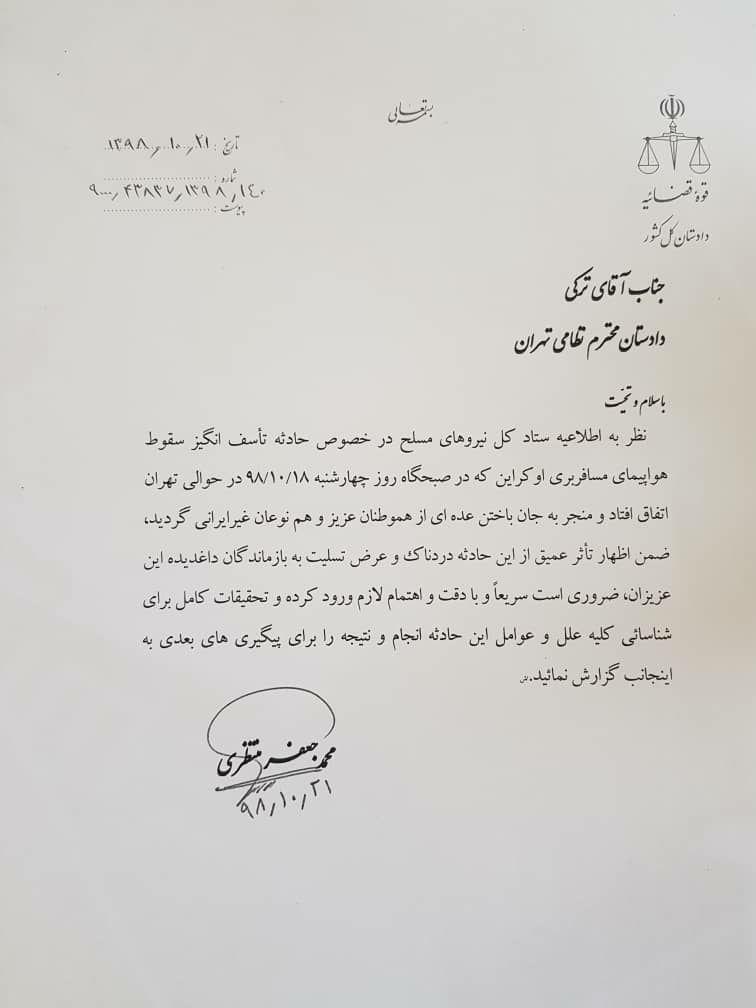 بسمه تعالی
قوهٔ قضائیه
دادستان کل کشور
تاریخ : ۱۳۹۸/۱۰/۲۱
شماره : ۹۰۰۰/۴۳۸۳۷/۱۳۹۸/۱۴۰
پیوست :
جناب آقای ترکی
دادستان محترم نظامی تهران
باسلام و تحیّت
نظر به اطلاعیه ستاد کل نیروهای مسلح در خصوص حادثه تأسف انگیز سقوط
هواپیمای مسافربری اوکراین که در صبحگاه روز چهارشنبه ۹۸/۱۰/۱۸ در حوالی تهران
اتفاق افتاد و منجر به جان باختن عده ای از هموطنان عزیز و هم نوعان غیرایرانی گردید،
ضمن اظهار تأثر عمیق از این حادثه دردناک و عرض تسلیت به بازماندگان داغدیده این
عزیزان، ضروری است سریعاً و با دقت و اهتمام لازم ورود کرده و تحقیقات کامل برای
شناسائی کلیه علل و عوامل این حادثه انجام و نتیجه را برای پیگیری های بعدی به
اینجانب گزارش نمائید.ش
محمد جعفر منتظری
۹۸/۱۰/۲۱